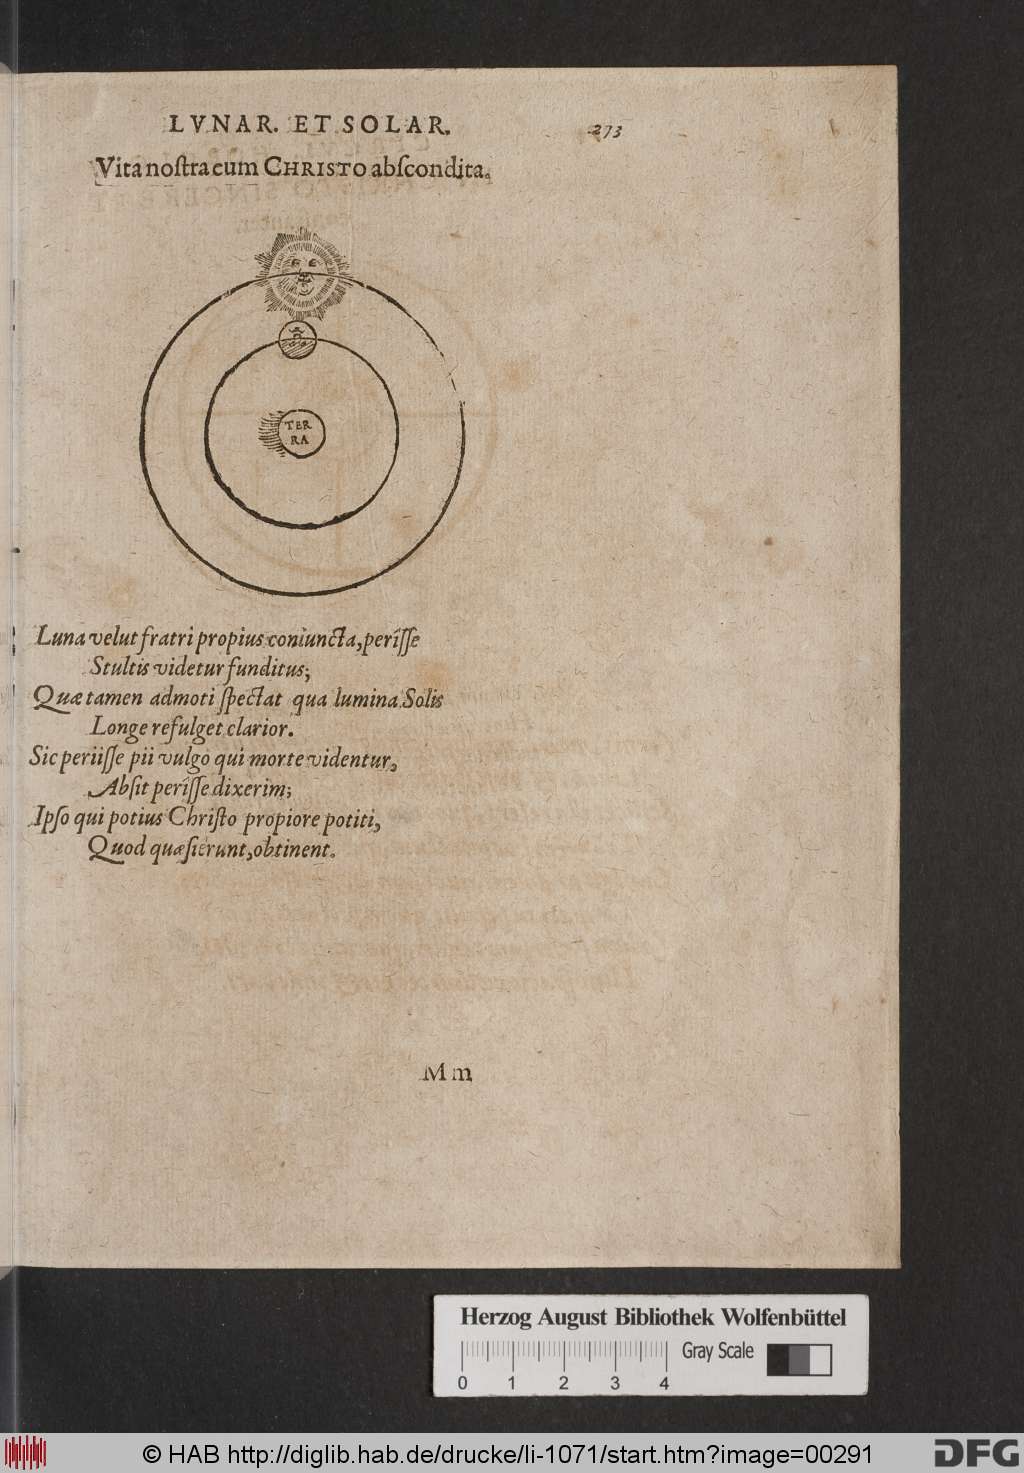 LVNAR. ET SOLAR.
273
Vita nostra cum CHRISTO abscondita.
TER
RA
Luna velut fratri propius coniuncta, perîsse
Stultis videtur funditus;
Quæ tamen admoti spectat qua lumina Solis
Longe refulget clarior.
Sic periisse pii vulgò qui morte videntur,
Absit perîsse dixerim;
Ipso qui potius Christo propiore potiti,
Quod quæsierunt, obtinent.
Mm
Herzog August Bibliothek Wolfenbüttel
Gray Scale
0 1 2 3 4
© HAB http://diglib.hab.de/drucke/li-1071/start.htm?image=00291
DFG